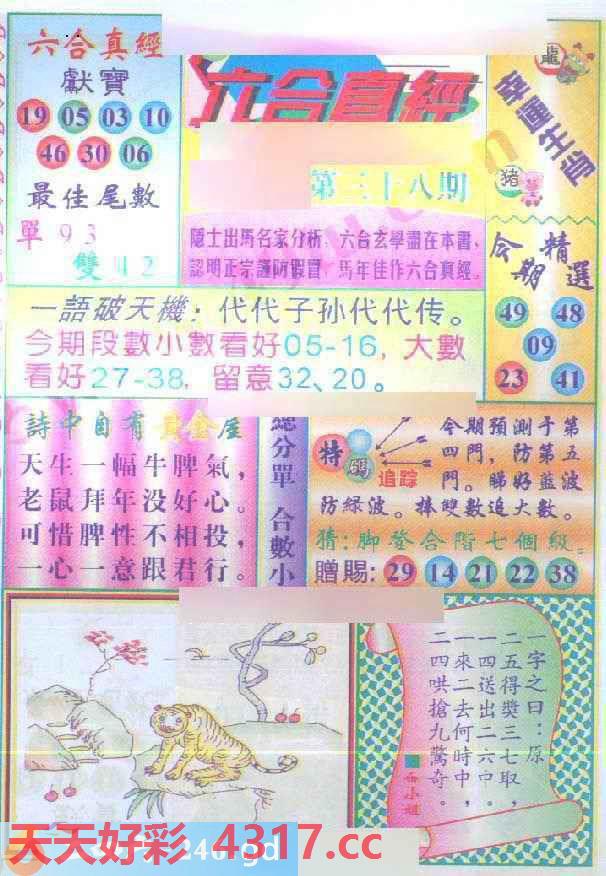 六合真經
獻寶
19 05 03 10
46 30 06
最佳尾數
單93
雙 2
六合真經
第三十八期
隱士出馬名家分析，六合玄學盡在本書，
認明正宗謹防假冒，馬年佳作六合真經。
龍
幸運生肖
豬
今期精選
49 48
09
23 41
一語破天機：代代子孙代代传。
今期段數小數看好05-16，大數
看好27-38，留意32、20。
詩中自有黃金屋
天生一幅牛脾氣，
老鼠拜年没好心。
可惜脾性不相投，
一心一意跟君行。
總分單 合數小
特碼
追踪
今期預測于第
四門，防第五
門。睇好藍波
防綠波。捧雙數追大數。
猜：脚登合階七個級。
贈賜：29 14 21 22 38
一字之曰：原
二五得獎三七取，
一四送出二六口。
一來二去何時中，
二四哄搶九驚奇。
天天好彩 4317.cc
246.gd